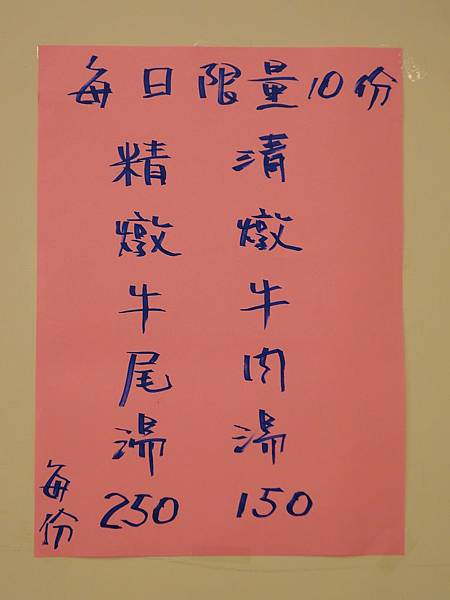 每日限量10份
清燉牛肉湯
150
精燉牛尾湯
250
每份